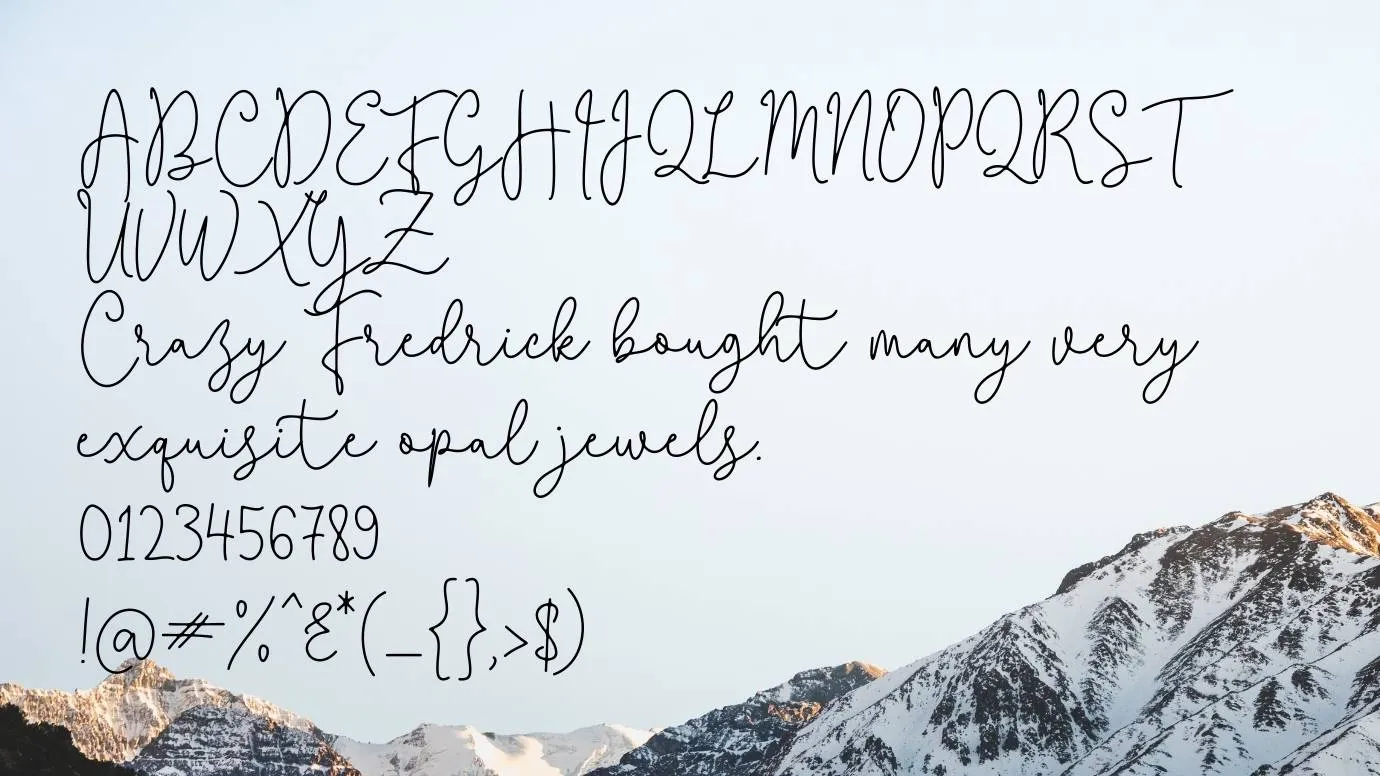 ABCDEFGHIJQLMNOPQRST
UVWXYZ
Crazy Fredrick bought many very
exquisite opal jewels.
0123456789
!@#%^&*(_{},>$)